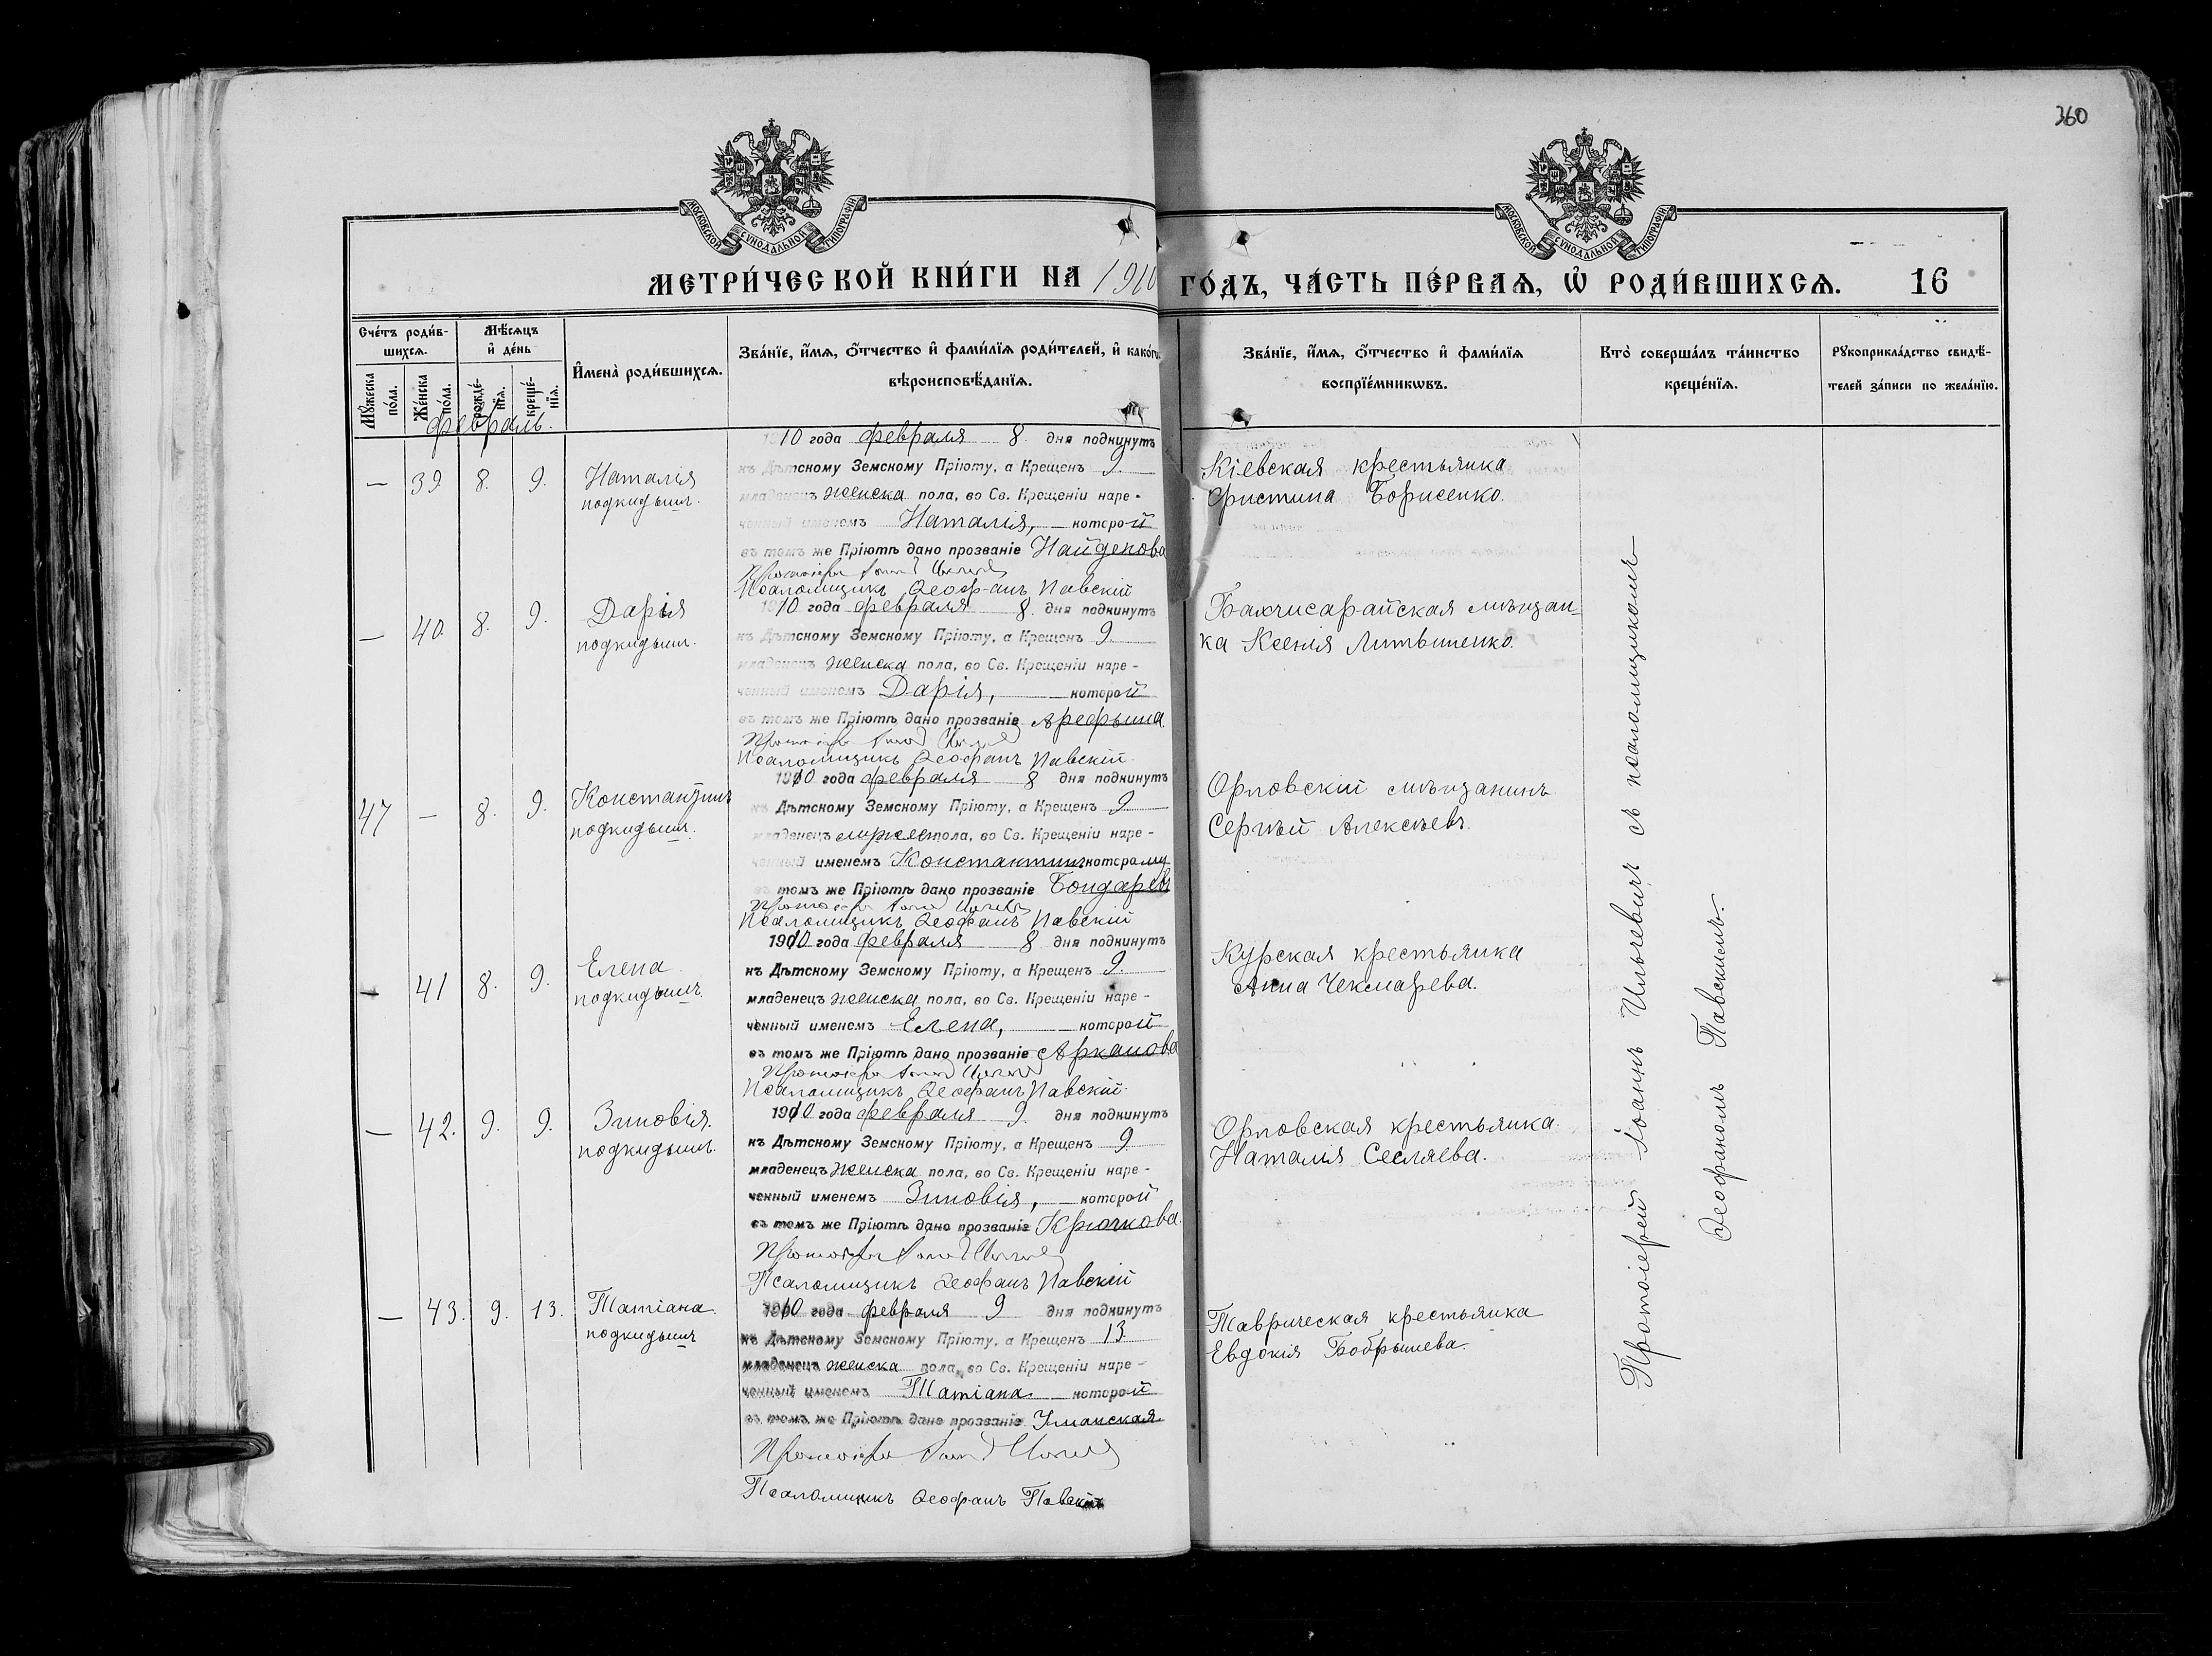 360
МОСКОВСКОЙ СѴНОДАЛЬНОЙ ТИПОГРАФІИ
МОСКОВСКОЙ СѴНОДАЛЬНОЙ ТИПОГРАФІИ
МЕТРИ́ЧЕСКОЙ КНИ́ГИ НА 1910 ГО́ДЪ, ЧА́СТЬ ПЕ́РВАѦ, Ѽ РОДИ́ВШИХСѦ. 16
Сче́тъ роди́в-
шихсѧ.
Мꙋ́жеска по́ла.
Же́нска по́ла.
Мѣ́сѧцъ
и҆ де́нь
рожде́-
нїѧ.
креще́-
нїѧ.
И҆мена̀ роди́вшихсѧ.
Зва́нїе, и҆́мѧ, ѻ҆́тчество и҆ фами́лїѧ роди́телей, и҆ како́гѡ
вѣроисповѣ́данїѧ.
Зва́нїе, и҆́мѧ, ѻ҆́тчество и҆ фами́лїѧ
воспрїе́мникѡвъ.
Кто̀ соверша́лъ та́инство
креще́нїѧ.
Рꙋкоприкла́дство свидѣ́-
телей за́писи по жела́нїю.
февраль.
— 39 8. 9.
Наталія
подкидышъ.
1910 года февраля 8 дня подкинутъ
къ Дѣтскому Земскому Пріюту, а Крещенъ 9.
младенецъ женска пола, во Св. Крещеніи наре-
ченный именемъ Наталія, которой
въ томъ же Пріютѣ дано прозваніе Найденова
Псаломщикъ Ѳеофанъ Павскій
Кіевская крестьянка
Христина Борисенко.
— 40 8. 9.
Дарія
подкидышъ.
1910 года февраля 8. дня подкинутъ
къ Дѣтскому Земскому Пріюту, а Крещенъ 9.
младенецъ женска пола, во Св. Крещеніи наре-
ченный именемъ Дарія, которой
въ томъ же Пріютѣ дано прозваніе Арефьина.
Псаломщикъ Ѳеофанъ Павскій
Бахчисарайская мѣщан-
ка Ксенія Литвиненко.
47 — 8. 9.
Константинъ
подкидышъ.
1910 года февраля 8 дня подкинутъ
къ Дѣтскому Земскому Пріюту, а Крещенъ 9.
младенецъ мужеск пола, во Св. Крещеніи наре-
ченный именемъ Константинъ которому
въ томъ же Пріютѣ дано прозваніе Бондаревъ
Псаломщикъ Ѳеофанъ Павскій
Орловскій мѣщанинъ
Сергѣй Алексѣевъ.
— 41 8. 9.
Елена
подкидышъ.
1910 года февраля 8 дня подкинутъ
къ Дѣтскому Земскому Пріюту, а Крещенъ 9.
младенецъ женска пола, во Св. Крещеніи наре-
ченный именемъ Елена, которой
въ томъ же Пріютѣ дано прозваніе Арканова
Псаломщикъ Ѳеофанъ Павскій
Курская крестьянка
Анна Чекмарева.
— 42. 9. 9.
Зиновія.
подкидышъ.
1910 года февраля 9. дня подкинутъ
къ Дѣтскому Земскому Пріюту, а Крещенъ 9
младенецъ женска пола, во Св. Крещеніи наре-
ченный именемъ Зиновія, которой
въ томъ же Пріютѣ дано прозваніе Крючкова.
Псаломщикъ Ѳеофанъ Павскій
Орловская крестьянка
Наталія Сесляева.
— 43. 9. 13.
Татіана.
подкидышъ
1910 года февраля 9 дня подкинутъ
къ Дѣтскому Земскому Пріюту, а Крещенъ 13.
младенецъ женска пола, во Св. Крещеніи наре-
ченный именемъ Татіана. которой
въ томъ же Пріютѣ дано прозваніе Уманская
Псаломщикъ Ѳеофанъ Павскій
Таврическая крестьянка
Евдокія Бобрышева.
Протоіерей Іоаннъ Ильчевичъ съ псаломщикомъ
Ѳеофаномъ Павскимъ.